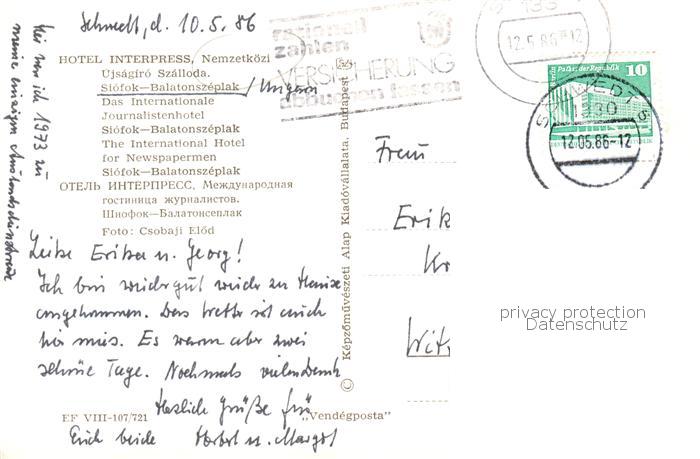 Schwedt, d. 10.5.86
rationell
zahlen
VERSICHERUNG
abbuchen lassen
12.5.86-12
Palast der Republik 10
SCHWEDT
1330
12.05.86-12
Hier war ich 1973 zu
meiner einzigen Auslandsdienstreise
HOTEL INTERPRESS, Nemzetközi
Újságíró Szálloda.
Siófok—Balatonszéplak / Ungarn
Das Internationale
Journalistenhotel
Siófok—Balatonszéplak
The International Hotel
for Newspapermen
Siófok—Balatonszéplak
ОТЕЛЬ ИНТЕРПРЕСС, Международная
гостиница журналистов.
Шиофок—Балатонсеплак
Foto: Csobaji Előd
Liebe Erika u. Georg!
Ich bin wieder gut wieder zu Hause
angekommen. Das Wetter ist auch
hier mies. Es waren aber zwei
schöne Tage. Nochmals vielen Dank
Herzliche Grüße für
Euch beide Herbert u. Margot
EF VIII-107/721
„Vendégposta”
© Képzőművészeti Alap Kiadóvállalata, Budapest
Frau
Erik
Kr
Witt
privacy protection
Datenschutz